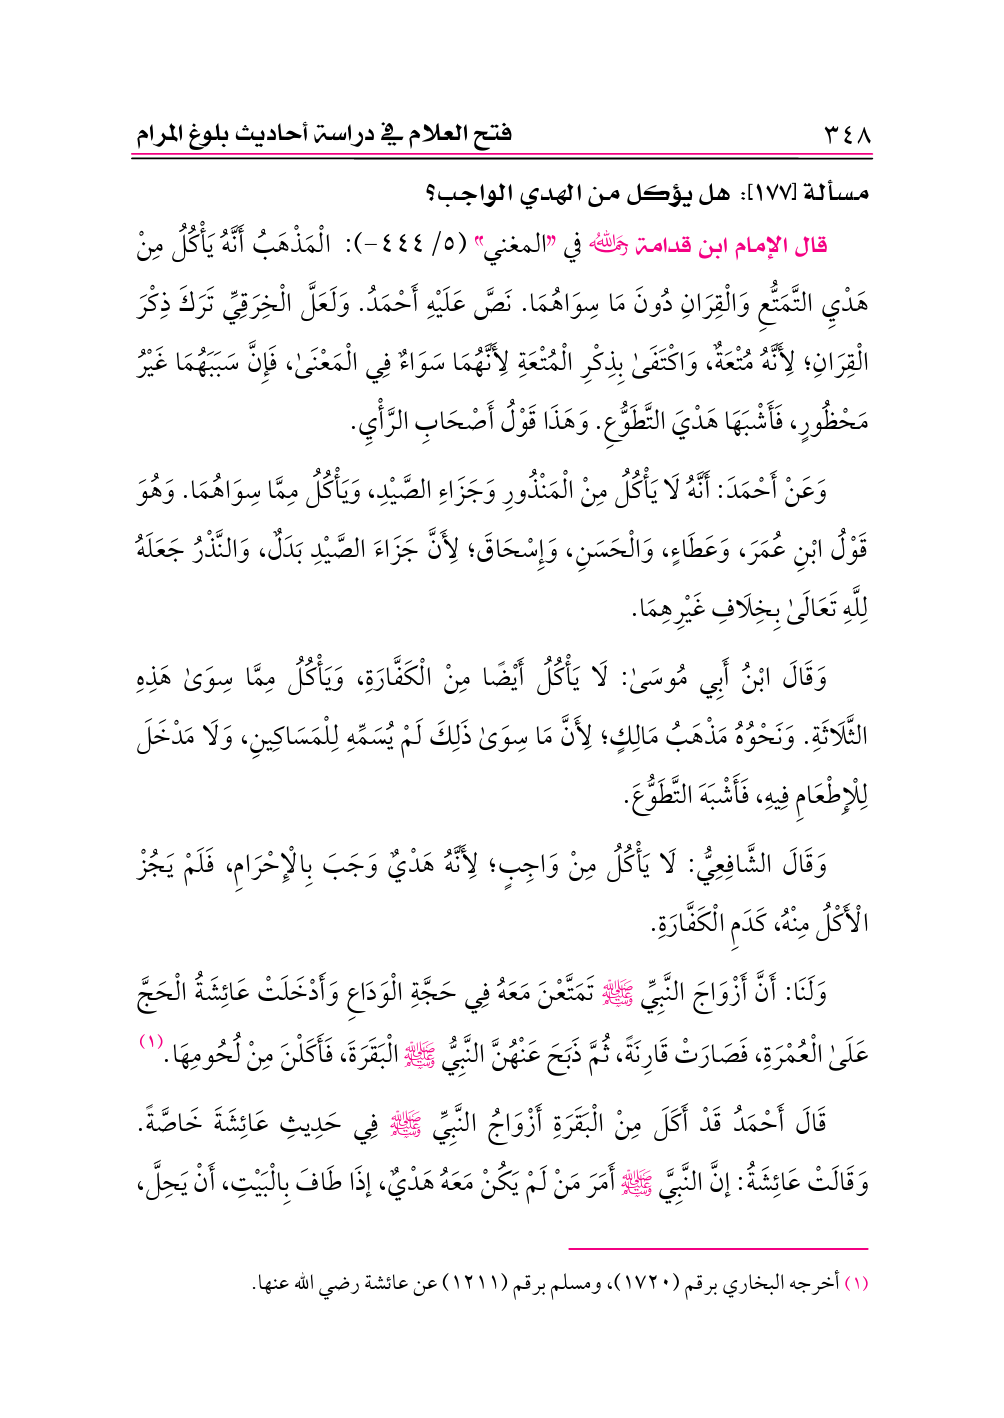 ٣٤٨
فتح العلام في دراسة أحاديث بلوغ المرام
مسألة [١٧٧]: هل يؤكل من الهدي الواجب؟
قال الإمام ابن قدامة رَحِمَهُ اللهُ في "المغني" (٥/ ٤٤٤-): الْمَذْهَبُ أَنَّهُ يَأْكُلُ مِنْ
هَدْيِ التَّمَتُّعِ وَالْقِرَانِ دُونَ مَا سِوَاهُمَا. نَصَّ عَلَيْهِ أَحْمَدُ. وَلَعَلَّ الْخِرَقِيِّ تَرَكَ ذِكْرَ
الْقِرَانِ؛ لِأَنَّهُ مُتْعَةٌ، وَاكْتَفَىٰ بِذِكْرِ الْمُتْعَةِ لِأَنَّهُمَا سَوَاءٌ فِي الْمَعْنَىٰ، فَإِنَّ سَبَبَهُمَا غَيْرُ
مَحْظُورٍ، فَأَشْبَهَا هَدْيَ التَّطَوُّعِ. وَهَذَا قَوْلُ أَصْحَابِ الرَّأْيِ.
وَعَنْ أَحْمَدَ: أَنَّهُ لَا يَأْكُلُ مِنْ الْمَنْذُورِ وَجَزَاءِ الصَّيْدِ، وَيَأْكُلُ مِمَّا سِوَاهُمَا. وَهُوَ
قَوْلُ ابْنِ عُمَرَ، وَعَطَاءٍ، وَالْحَسَنِ، وَإِسْحَاقَ؛ لِأَنَّ جَزَاءَ الصَّيْدِ بَدَلٌ، وَالنَّذْرُ جَعَلَهُ
لِلَّهِ تَعَالَىٰ بِخِلَافِ غَيْرِهِمَا.
وَقَالَ ابْنُ أَبِي مُوسَىٰ: لَا يَأْكُلُ أَيْضًا مِنْ الْكَفَّارَةِ، وَيَأْكُلُ مِمَّا سِوَىٰ هَذِهِ
الثَّلَاثَةِ. وَنَحْوُهُ مَذْهَبُ مَالِكٍ؛ لِأَنَّ مَا سِوَىٰ ذَلِكَ لَمْ يُسَمِّهِ لِلْمَسَاكِينِ، وَلَا مَدْخَلَ
لِلْإِطْعَامِ فِيهِ، فَأَشْبَهَ التَّطَوُّعَ.
وَقَالَ الشَّافِعِيُّ: لَا يَأْكُلُ مِنْ وَاجِبٍ؛ لِأَنَّهُ هَدْيٌ وَجَبَ بِالْإِحْرَامِ، فَلَمْ يَجُزْ
الْأَكْلُ مِنْهُ، كَدَمِ الْكَفَّارَةِ.
وَلَنَا: أَنَّ أَزْوَاجَ النَّبِيِّ ﷺ تَمَتَّعْنَ مَعَهُ فِي حَجَّةِ الْوَدَاعِ وَأَدْخَلَتْ عَائِشَةُ الْحَجَّ
عَلَىٰ الْعُمْرَةِ، فَصَارَتْ قَارِنَةً، ثُمَّ ذَبَحَ عَنْهُنَّ النَّبِيُّ ﷺ الْبَقَرَةَ، فَأَكَلْنَ مِنْ لُحُومِهَا.(١)
قَالَ أَحْمَدُ قَدْ أَكَلَ مِنْ الْبَقَرَةِ أَزْوَاجُ النَّبِيِّ ﷺ فِي حَدِيثِ عَائِشَةَ خَاصَّةً.
وَقَالَتْ عَائِشَةُ: إنَّ النَّبِيَّ ﷺ أَمَرَ مَنْ لَمْ يَكُنْ مَعَهُ هَدْيٌ، إذَا طَافَ بِالْبَيْتِ، أَنْ يَحِلَّ،
(١) أخرجه البخاري برقم (١٧٢٠)، ومسلم برقم (١٢١١) عن عائشة رضي الله عنها.